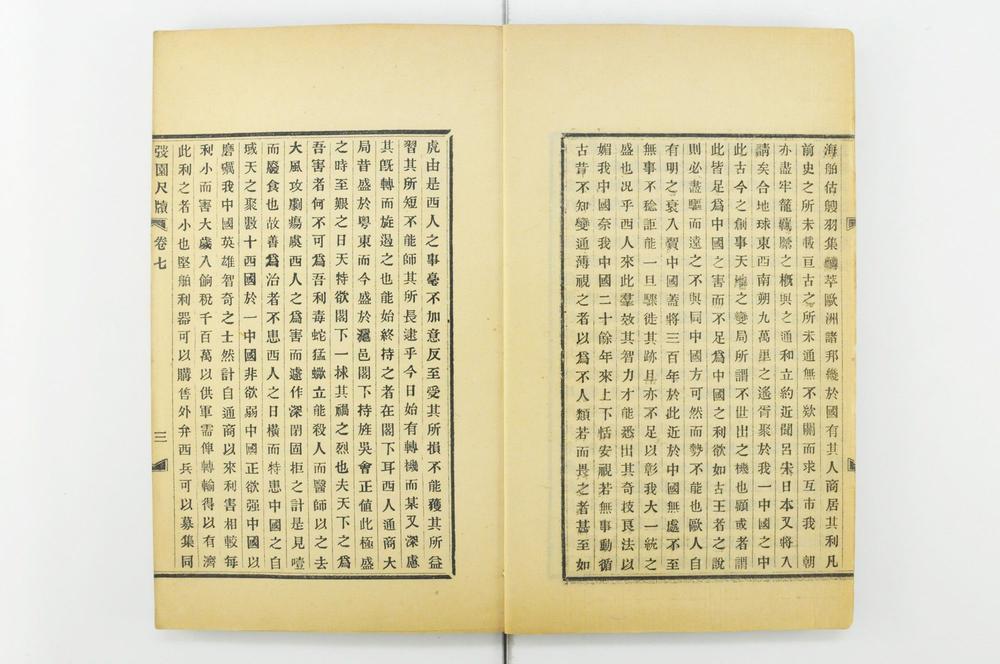 海舶估艘羽集鱗萃歐洲諸邦幾於國有其人商居其利凡
前史之所未載亘古之所未通無不欵關而求互市我　朝
亦盡牢籠羈縻之槪與之通和立約近聞呂宋日本又將入
請矣合地球東西南朔九萬里之遙胥聚於我一中國之中
此古今之創事天地之變局所謂不世出之機也顧或者謂
此皆足爲中國之害而不足爲中國之利欲如古王者之說
則必盡驅而遠之不與同中國方可然而勢不能也歐人自
有明之衰入賈中國蓋將三百年於此近於中國無處不至
無事不稔詎能一旦驟徙其跡且亦不足以彰我大一統之
盛也况乎西人來此羣效其智力才能悉出其奇技良法以
媚我中國奈我中國二十餘年來上下恬安視若無事動循
古昔不知變通薄視之者以爲不人類若而畏之者甚至如
虎由是西人之事毫不加意反至受其所損不能獲其所益
習其所短不能師其所長逮乎今日始有轉機而某又深慮
其旣轉而旋遏之也能始終持之者在閣下耳西人通商大
局昔盛於粵東而今盛於滬邑閣下持旌吳會正値此極盛
之時至艱之日天特欲閣下一拯其禍之烈也夫天下之爲
吾害者何不可爲吾利毒蛇猛蠍立能殺人而醫師以之去
大風攻劇瘍虞西人之爲害而遽作深閉固拒之計是見噎
而廢食也故善爲治者不患西人之日橫而特患中國之自
域天之聚數十西國於一中國非欲弱中國正欲强中國以
磨礪我中國英雄智奇之士然計自通商以來利害相較每
利小而害大歲入餉稅千百萬以供軍需俾轉輸得以有濟
此利之者小也堅舶利器可以購售外弁西兵可以募集同
弢園尺牘　卷七　三